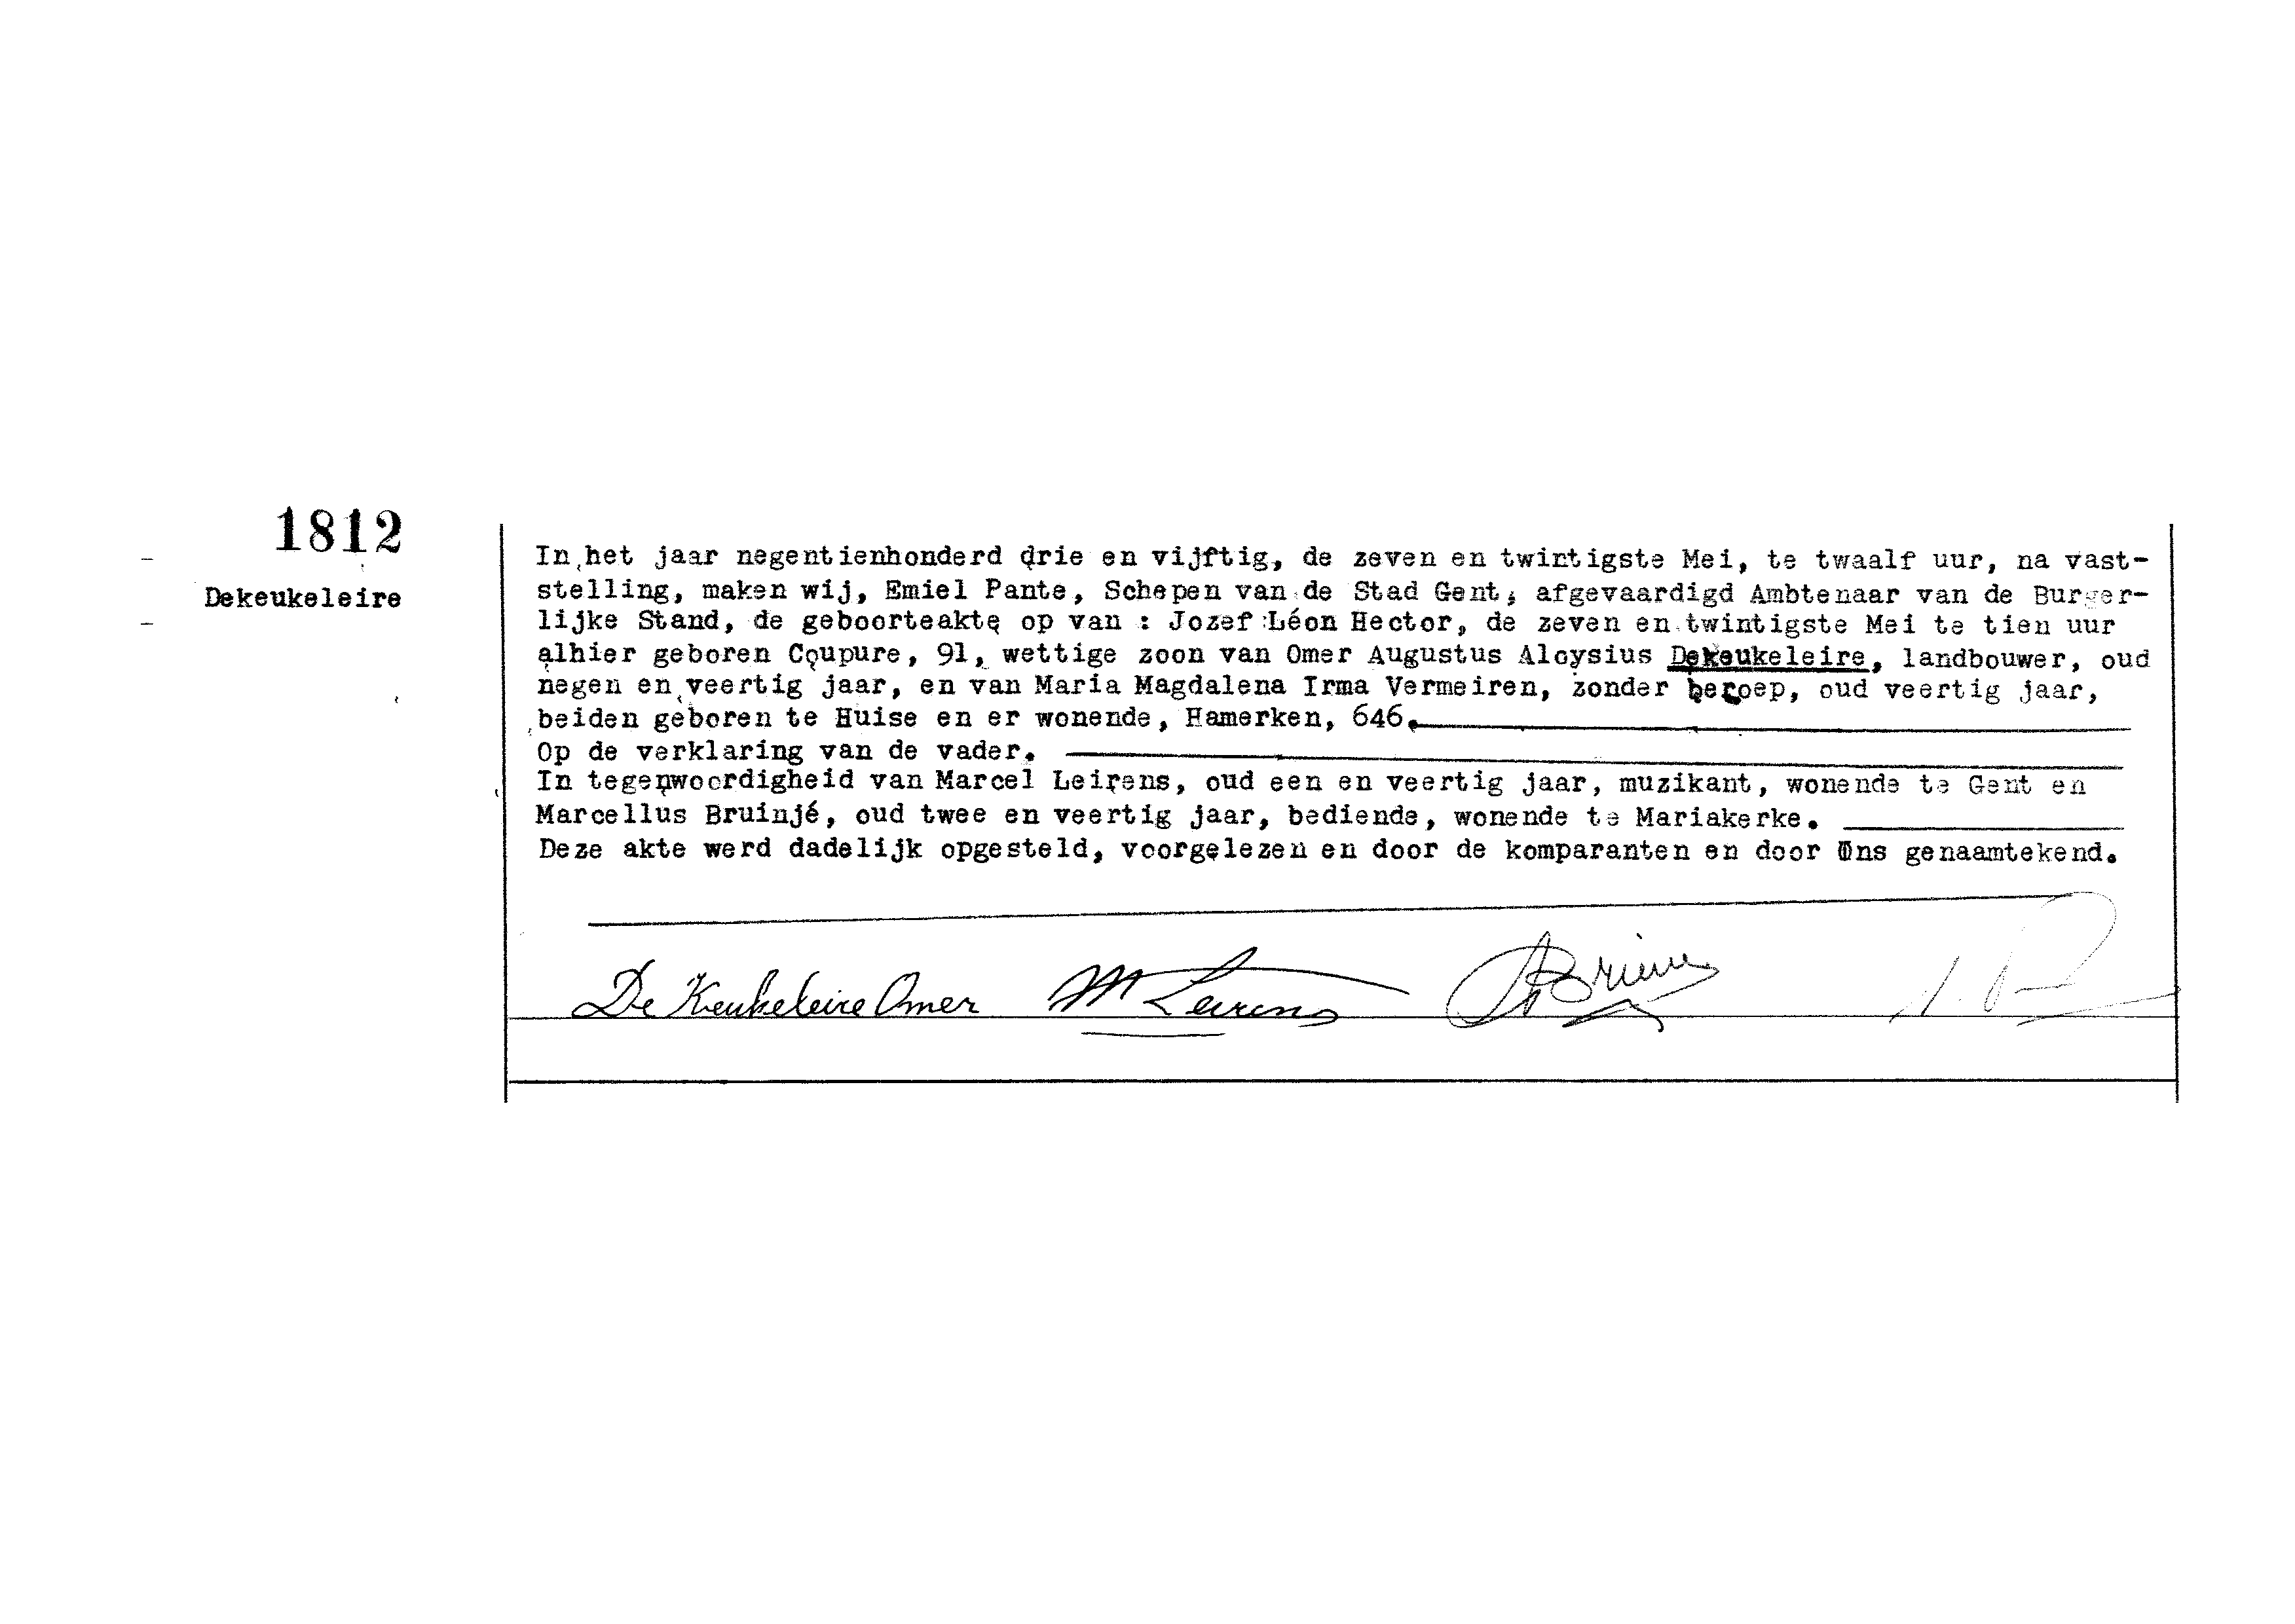 1812
Dekeukeleire
In het jaar negentienhonderd drie en vijftig, de zeven en twintigste Mei, te twaalf uur, na vast-
stelling, maken wij, Emiel Pante, Schepen van de Stad Gent, afgevaardigd Ambtenaar van de Burger-
lijke Stand, de geboorteakte op van : Jozef Léon Hector, de zeven en twintigste Mei te tien uur
alhier geboren Coupure, 91, wettige zoon van Omer Augustus Aloysius Dekeukeleire, landbouwer, oud
negen en veertig jaar, en van Maria Magdalena Irma Vermeiren, zonder beroep, oud veertig jaar,
beiden geboren te Huise en er wonende, Hamerken, 646.
Op de verklaring van de vader.
In tegenwoordigheid van Marcel Leirens, oud een en veertig jaar, muzikant, wonende te Gent en
Marcellus Bruinjé, oud twee en veertig jaar, bediende, wonende te Mariakerke.
Deze akte werd dadelijk opgesteld, voorgelezen en door de komparanten en door Ons genaamtekend.
De Keukeleire Omer M Leirens